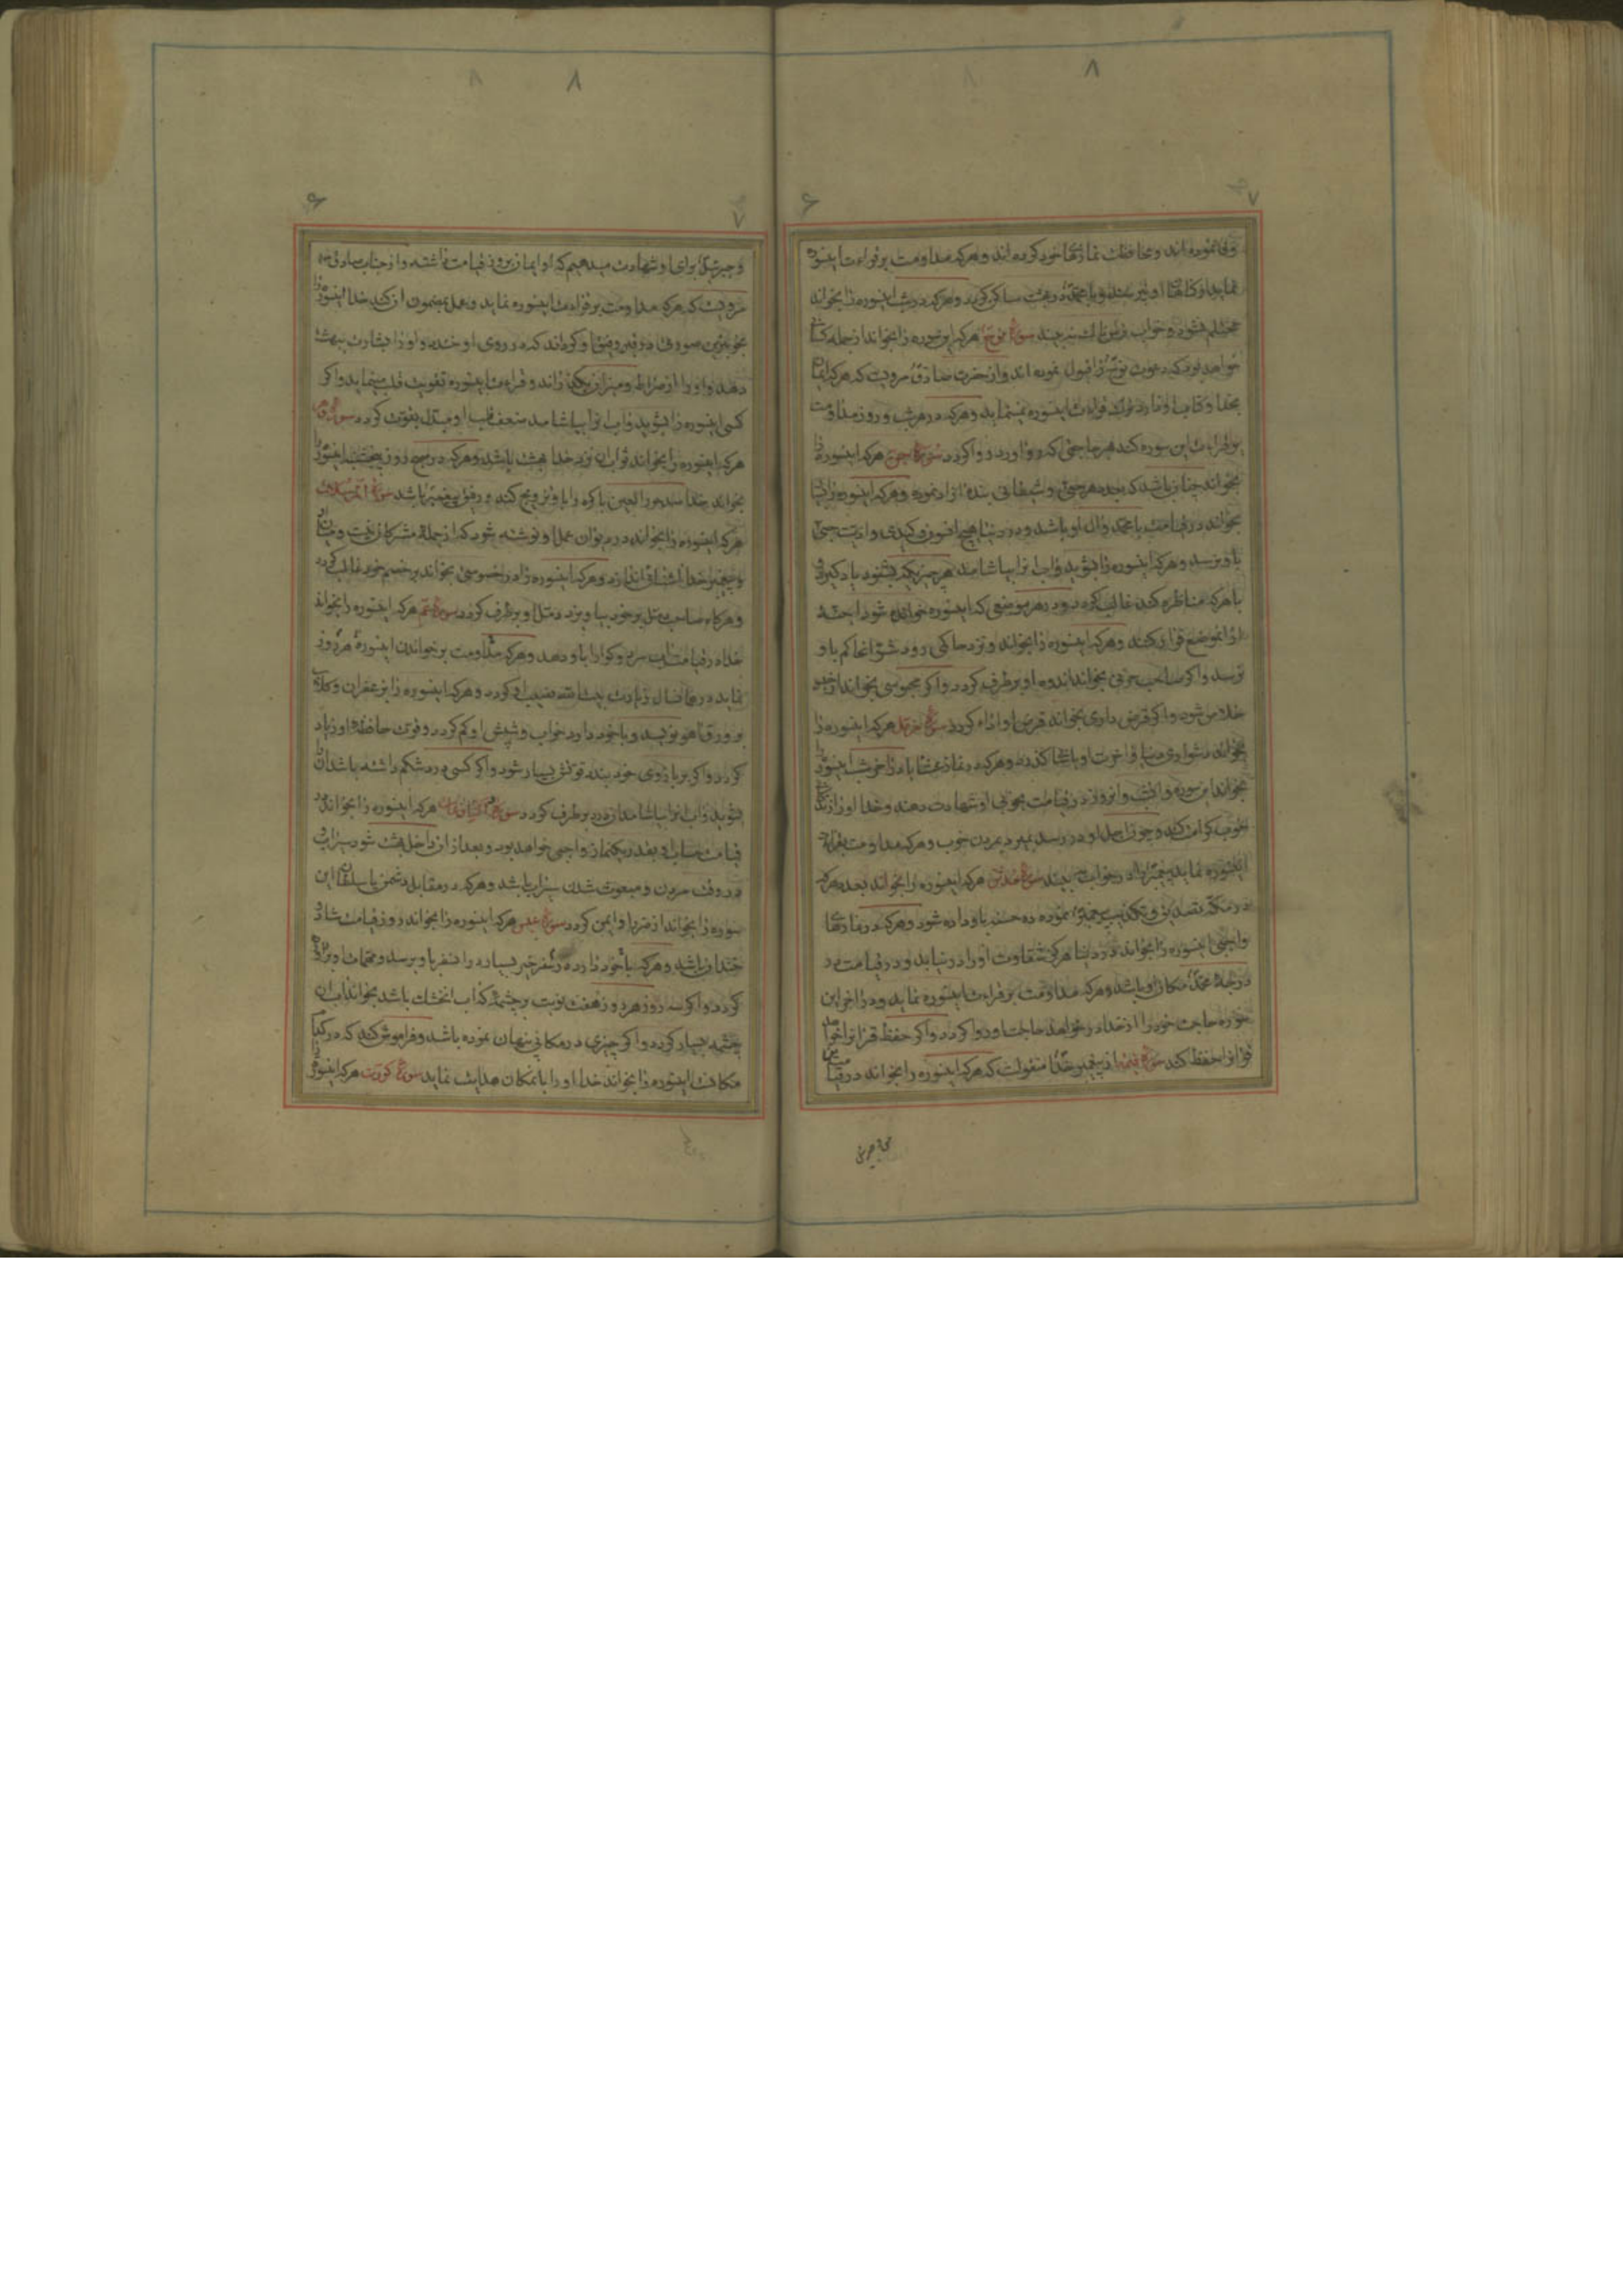 ۸
۷ ۶
وفا نموده‌اند و محافظت نمازهای خود کرده‌اند و هرکه مداومت بر قراءت اینسوره
نماید و با محمد در بهشت ساکن گردد و هرکه در شب اینسوره را بخواند
محتلم نشود و خواب ترسناک نه بیند سورهٔ نوح هرکه این سوره را بخواند از جمله
خواهد بود که دعوت نوح را قبول نموده اند و از حضرت صادق مرویست که هرکه ایمان
بخدا و کتاب او دارد ترک قراءت اینسوره نمینماید و هرکه در هر شب و روز مداومت
بر قراءت این سوره کند هر حاجتی که دارد روا گردد سورهٔ جن هرکه اینسوره را
بخواند چنان باشد که بعدد هر جنی و شیطانی بندهٔ ازاد نموده و هرکه اینسوره را
بخواند در قیامت با محمد و ال او باشد و در دنیا هیچ افسون و کیدی و اذیت جنی
باو نرسد و هرکه اینسوره را بشوید و اب انرا بیاشامد هر چیزیکه بشنود یاد گیرد و
با هرکه مناظره کند غالب گردد و در هر موضعی که اینسوره خوانده شود اجنه
از انموضع فرار کنند و هرکه اینسوره را بخواند و نزد حاکمی رود شر انحاکم باو
نرسد و اگر صاحب حزنی بخواند اندوه او برطرف گردد و اگر محبوسی بخواند از حبس
خلاص شود و اگر قرض داری بخواند قرض او اداء گردد سورهٔ مزمل هرکه اینسوره را
بخواند دشواری دنیا و اخرت او باسانی گذرد و هرکه در نماز عشا یا در اخر شب اینسوره را
بخواند این سوره و انشب و انروز در قیامت بخوبی او شهادت دهند و خدا او را زندگانی
خوب کرامت کند و چون اجل او در رسد بمیرد بمردن خوب و هرکه مداومت بقراءت
اینسوره نماید پیغمبر را در خواب به بیند سورهٔ مدثر هرکه اینسوره را بخواند بعدد هرکه
در مکه تصدیق و تکذیب پیغمبر نموده ده حسنه باو داده شود و هرکه در نمازهای
واجبی اینسوره را بخواند در دنیا هرگز شقاوت او را در نیابد و در قیامت در
درجهٔ محمد مکان او باشد و هرکه مداومت بر قراءت اینسوره نماید و در اخر این
سوره حاجت خود را از خدا در خواهد حاجت او روا گردد و اگر حفظ قرانرا خواهد
قرانرا حفظ کند سورهٔ قیمه از پیغمبر خدا منقولست که هرکه اینسوره را بخواند در قیامت من
۸
۶ ۷
و جبرئیل برای او شهادت میدهیم که او ایمان بروز قیامت داشته و از جناب صادق
مرویست که هرکه مداومت بر قراءت اینسوره نماید و عمل بمضمون ان کند خدا اینسوره را
بخوبترین صورتی در قبر رفیق او گرداند که در روی او خندد و او را بشارت ببهشت
دهد و او را از صراط و میزان بگذراند و قراءت اینسوره تقویت قلب مینماید و اگر
کسی اینسوره را بشوید و اب انرا بیاشامد ضعف قلب او مبدل بقوت گردد سورهٔ دهر
هرکه اینسوره را بخواند ثواب ان نزد خدا بهشت باشد و هرکه در صبح روز پنجشنبه اینسوره را
بخواند خدا صد حور العین باکره را باو تزویج کند و رفیق پیغمبر باشد سورهٔ المرسلات
هرکه اینسوره را بخواند در دیوان عمل او نوشته شود که از جملهٔ مشرکان نیست و میان او
و پیغمبر خدا اشنائی اندازد و هرکه اینسوره را در خصومتی بخواند بر خصم خود غالب گردد
و هرگاه صاحب دمل بر خود بیاویزد دمل او برطرف گردد سورهٔ عم هرکه اینسوره را بخواند
خدا در قیامت اب سرد و گوارا باو دهد و هرکه مداومت بر خواندن اینسوره هر روز
نماید در همان سال زیارت بیت الله نصیب او گردد و هرکه اینسوره را بزعفران و گلاب
بر ورق اهو نویسد و با خود دارد خواب و شپش او کم گردد و قوت حافظهٔ او زیاد
گردد و اگر بر بازوی خود بندد قوتش بسیار شود و اگر کسی درد شکم داشته باشد انرا
بشوید و اب انرا بیاشامد از درد برطرف گردد سورهٔ والنازعات هرکه اینسوره را بخواند در
قیامت حساب او بقدر یکنماز واجبی خواهد بود و بعد از ان داخل بهشت شود سیراب و
در وقت مردن و مبعوث شدن سیراب باشد و هرکه در مقابل دشمن یا سلطانی این
سوره را بخواند از ضرر او ایمن گردد سورهٔ عبس هرکه اینسوره را بخواند روز قیامت شاد و
خندان باشد و هرکه با خود دارد در سفر خیر بسیار در انسفر باو برسد و مهمات او بر اورده
گردد و اگر سه روز هر روز هفت نوبت بر چشمهٔ که اب انخشک باشد بخواند اب ان
چشمه بسیار گردد و اگر چیزی در مکانی پنهان نموده باشد و فراموش کند که در کجا
مکانست اینسوره را بخواند خدا او را بانمکان هدایت نماید سورهٔ کورت هرکه اینسوره را